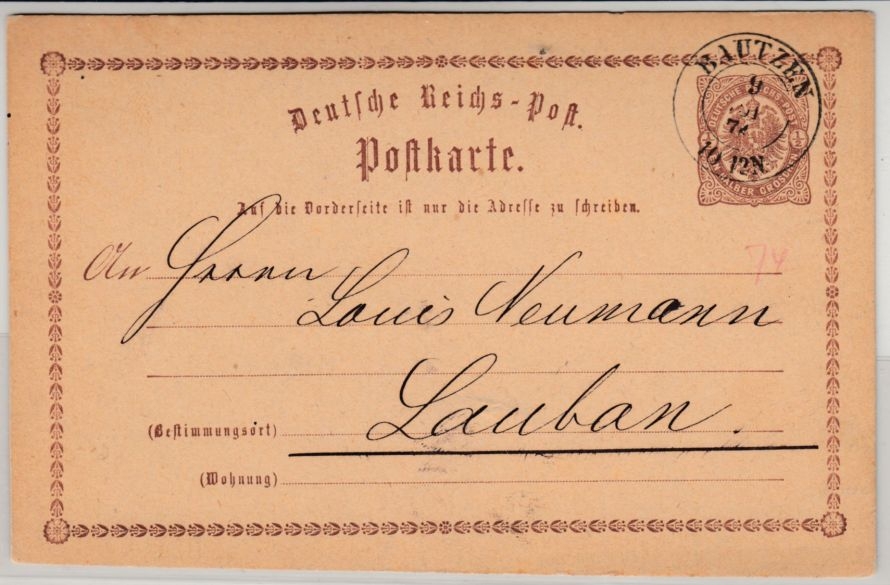 Deutsche Reichs-Post.
Postkarte.
Auf die Vorderseite ist nur die Adresse zu schreiben.
BAUTZEN
9
74
10-12N.
DEUTSCHE REICHS-POST
EIN HALBER GROSCHEN
74
An Herrn
Louis Neumann
(Bestimmungsort) Lauban.
(Wohnung)